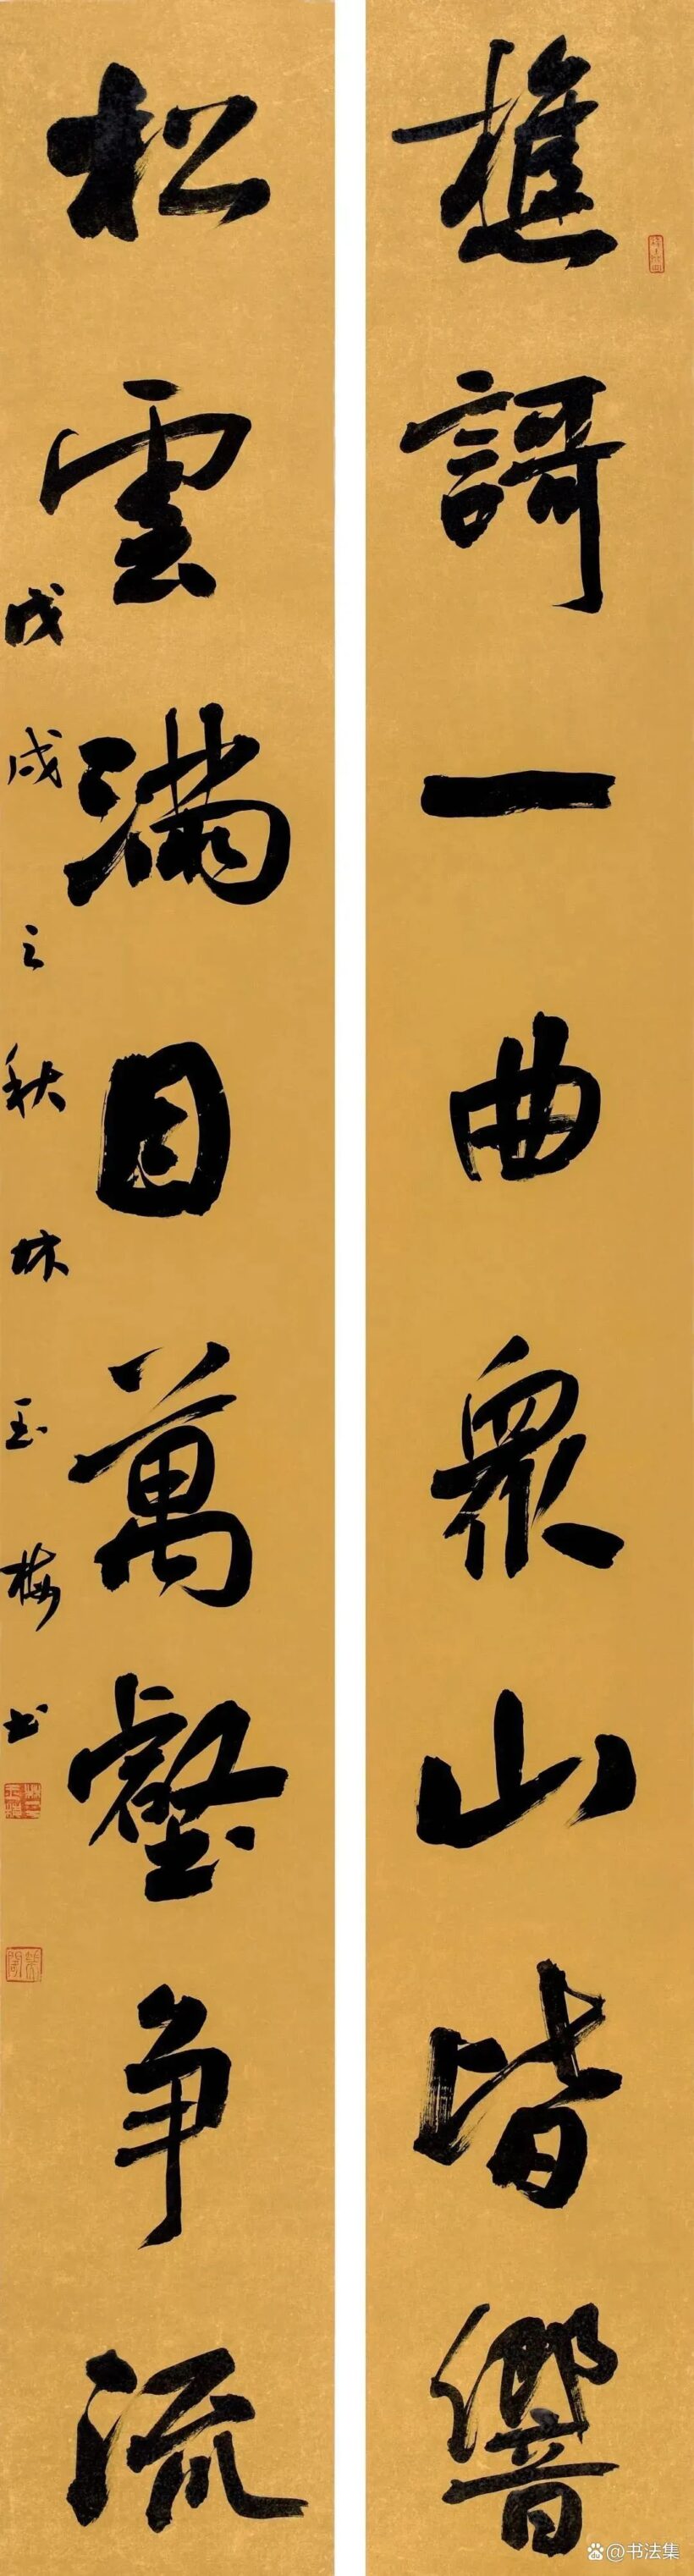 樵謌一曲眾山皆響
松雲滿目萬壑争流
戊戌之秋林玉梅书
@书法集